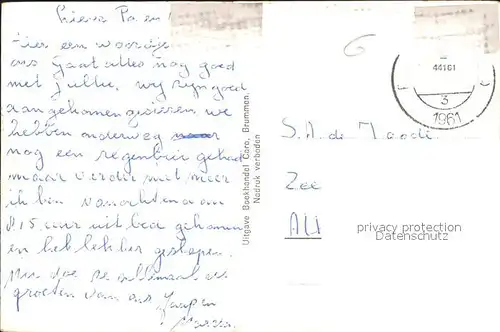 Lieve Pa en
Hier een woordje
ons gaat alles nog goed
met jullie, wij zijn goed
aangekomen gisteren, we
hebben onderweg
nog een regenbui gehad
maar verder niet meer
ik ben vanochtend om
8.15 uur uit bed gekomen
en heb lekker geslapen.
Nu doe ze allemaal de
groeten van ons Jaap en
Uitgave Boekhandel Caro, Brummen.
Nadruk verboden
6
44161
3
1961
S. A. de
Zee
privacy protection
Datenschutz